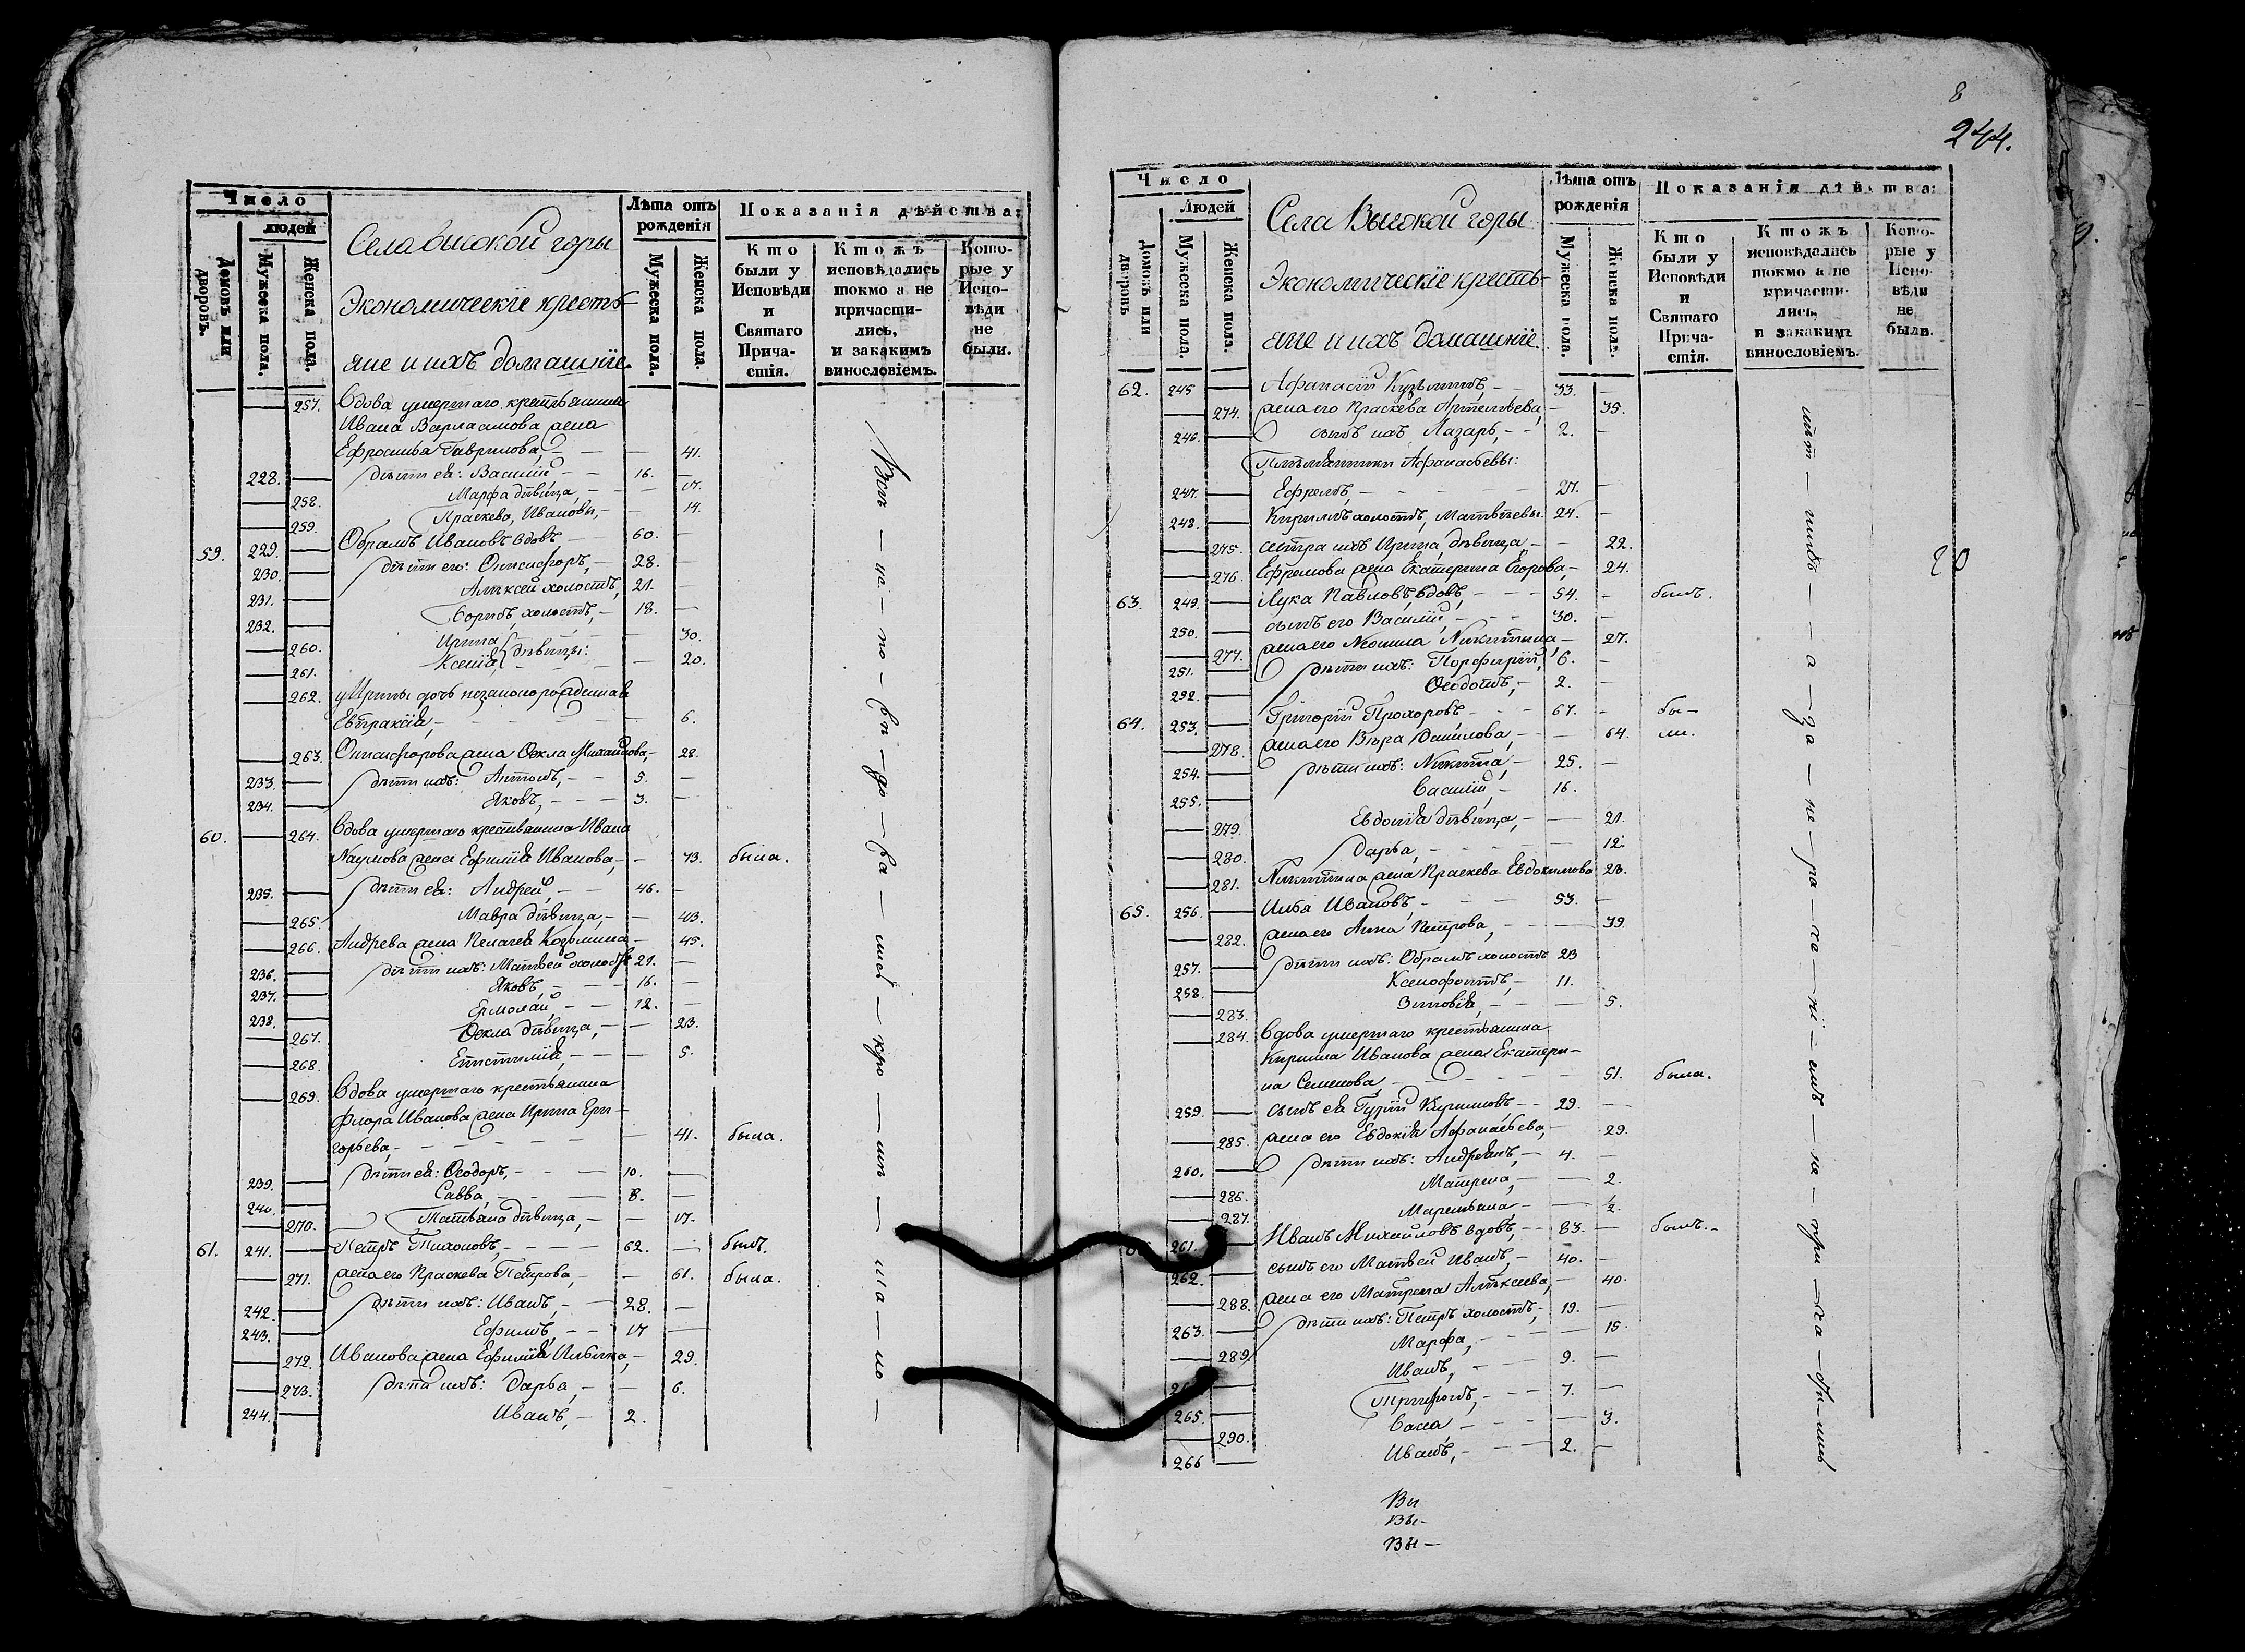 Число
людей
Домовъ или дворовъ.
Мужеска пола.
Женска пола.
Села высокой горы
Экономическіе кресть-
яне и ихъ домашніе.
Лѣта отъ рожденія
Мужеска пола.
Женска пола.
Показанія дѣйства:
Кто были у Исповѣди и Святаго Прича-стія.
Ктожъ исповѣдались токмо а не причасти-лись, и закакимъ винословіемъ.
Кото-рые у Испо-вѣди не были.
257. Вдова умершаго крестьянина
Ивана Варлаамова жена
Ефросинья Гаврилова, 41.
228. дѣти ея: Василій 16.
258. Марфа дѣвица, 17.
259. Праскева, Ивановы, 14.
59. 229. Обрамъ Ивановъ вдовъ 60.
230. дѣти его: Онисифоръ, 28.
231. Алѣксей холостъ, 21.
232. Борисъ, холостъ, 18.
260. Ирина 30.
261. Ксенія дѣвицы: 20.
262. у Ирины дочь незаконорожденная
Евпраксія, 6.
263. Онисифорова жена Ѳекла Михайлова, 28.
233. дѣти ихъ: Антонъ, 5.
234. Яковъ, 3.
60. 264. Вдова умершаго крестьянина Ивана
Наумова жена Ефимія Иванова, 73. была.
235. дѣти ея: Андрей, 46.
265. Мавра дѣвица, 43.
266. Андреева жена Пелагея Козьмина 45.
236. дѣти ихъ: Матвей холостъ 21.
237. Яковъ, 16.
238. Ермолай, 12.
267. Ѳекла дѣвица, 23.
268. Епистимія, 5.
269. Вдова умершаго крестьянина
Флора Иванова жена Ирина Гри-
горьева, 41. была.
239. дѣти ея: Ѳеодоръ, 10.
240. Савва, 8.
270. Татьяна дѣвица, 17.
61. 241. Петръ Тихоновъ, 62. былъ.
271. жена его Праскева Петрова, 61. была.
242. дѣти ихъ: Иванъ, 28.
243. Ефимъ, 17
272. Иванова жена Ефимія Ильина, 29.
273. дѣти ихъ: Дарья, 6.
244. Иванъ, 2.
8
244.
Число
Людей
Домовъ или дворовъ
Мужеска пола.
Женска пола.
Села Высокой горы
Экономическіе кресть-
яне и ихъ домашніе.
Лѣта отъ рожденія
Мужеска пола.
Женска пола.
Показанія дѣйства:
Кто были у Исповѣди и Святаго Прича-стія.
Ктожъ исповѣдались токмо а не причасти-лись, и закакимъ винословіемъ.
Кото-рые у Испо-вѣди не были.
62. 245 Афанасій Кузьминъ, 33.
274. жена его Праскева Артемьева, 35.
246. сынъ ихъ Лазарь, 2.
Племянники Афанасьевы:
247. Ефремъ, 27.
248. Кириллъ холостъ, Матвѣевы. 24.
275. сестра ихъ Ирина, дѣвица 22.
276. Ефремова жена Екатерина Егорова, 24.
20
63. 249. Лука Павловъ, вдовъ, 54. былъ.
250. сынъ его Василій, 30.
277. жена его Неонила Никитина, 27.
251. дѣти ихъ: Порфирій, 6.
252. Ѳеодотъ, 2.
64. 253. Григорій Прохоровъ 67. бы-
278. жена его Вѣра Данилова, 64. ли.
254. дѣти ихъ: Никита, 25.
255. Василій, 16.
279. Евдокія дѣвица, 21.
280. Дарья, 12.
281. Никитина жена Праскева Евдокимова 28.
65. 256. Илья Ивановъ, 53.
282. жена его Анна Петрова, 39.
257. дѣти ихъ: Обрамъ холостъ 23
258. Ксенофонтъ, 11.
283. Зиновія, 5.
284. Вдова умершаго крестьянина
Кирилла Иванова жена Екатери-
на Семенова, 51. была.
259. сынъ ея Гурій Кириловъ 29.
285. жена его Евдокія Афанасьева, 29.
260. дѣти ихъ: Андреянъ, 4.
286. Матрена, 2.
287. Маремьяна 2.
261. Иванъ Михайловъ вдовъ, 83. былъ.
262. сынъ его Матвей Иванъ, 40.
288. жена его Матрена Алѣксеева, 40.
263. дѣти ихъ: Петръ холостъ, 19.
289. Марфа, 15.
Иванъ, 9.
265. Трифонъ, 7.
290. Васса, 3.
266 Иванъ, 2.
Вы
Вы-
Вы-